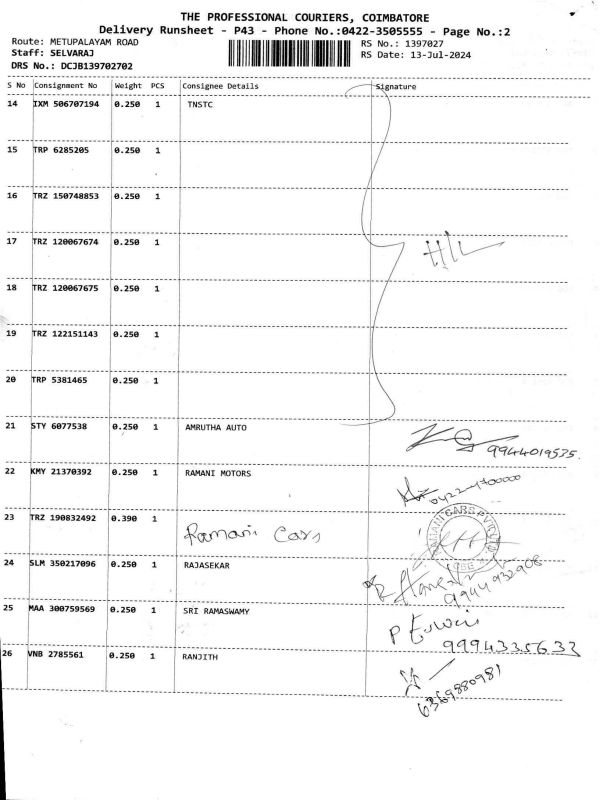 THE PROFESSIONAL COURIERS, COIMBATORE
Delivery Runsheet - P43 - Phone No.:0422-3505555 - Page No.:2
Route: METUPALAYAM ROAD RS No.: 1397027
Staff: SELVARAJ RS Date: 13-Jul-2024
DRS No.: DCJB139702702
S No Consignment No Weight PCS Consignee Details Signature
14 IXM 506707194 0.250 1 TNSTC
15 TRP 6285205 0.250 1
16 TRZ 150748853 0.250 1
17 TRZ 120067674 0.250 1
18 TRZ 120067675 0.250 1
19 TRZ 122151143 0.250 1
20 TRP 5381465 0.250 1
21 STY 6077538 0.250 1 AMRUTHA AUTO
9944019535.
22 KMY 21370392 0.250 1 RAMANI MOTORS
23 TRZ 190832492 0.390 1 Ramani Cars
RAMANI CARS PVT LTD
CBE
24 SLM 350217096 0.250 1 RAJASEKAR
9944932908
25 MAA 300759569 0.250 1 SRI RAMASWAMY
9994335633
26 VNB 2785561 0.250 1 RANJITH
6369880981